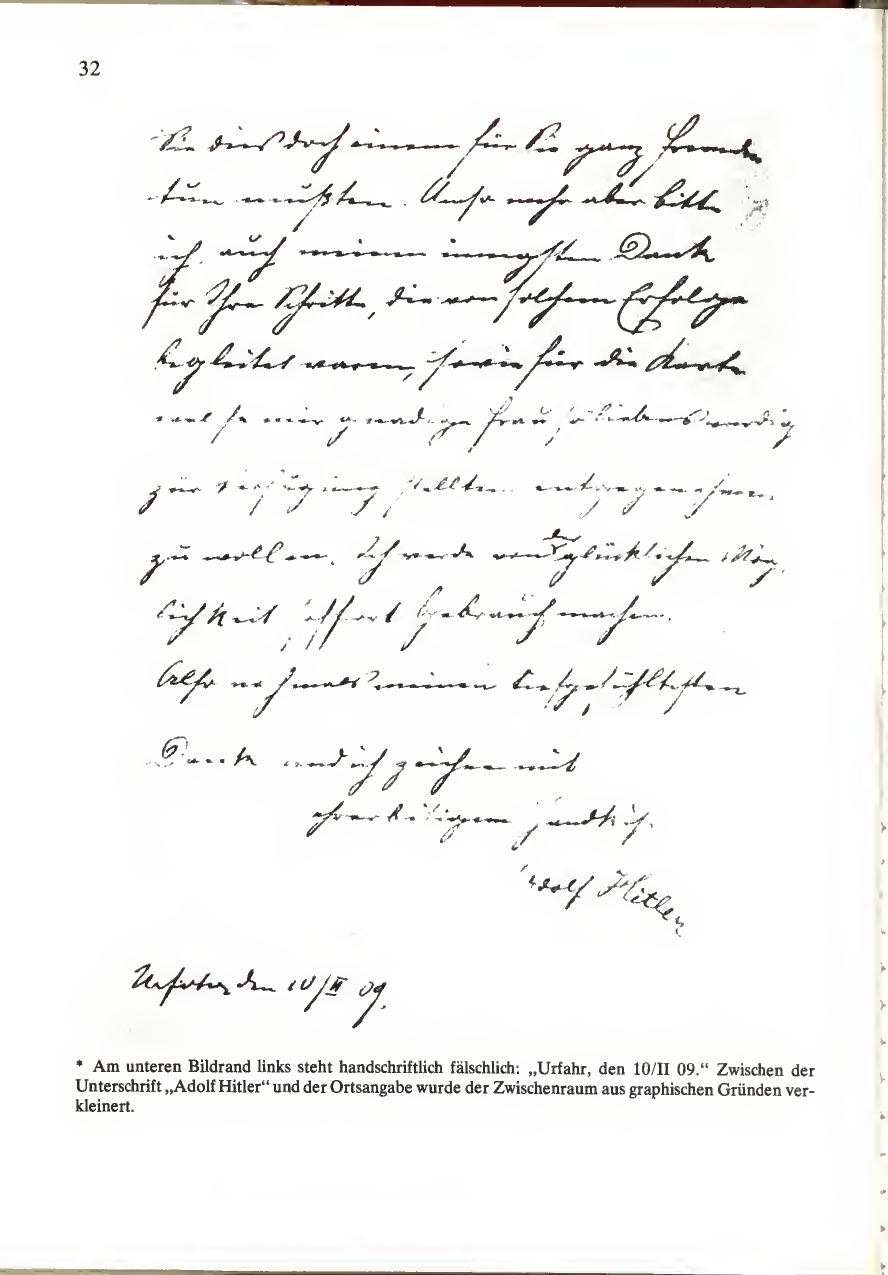 32
Sie dies doch einem für Sie ganz Fremden
tun mußten. Umso mehr aber bitte
ich auch meinen innigsten Dank
für Ihre Schritte, die von solchem Erfolge
begleitet waren, sowie für die Karte
welche mir gnädige Frau so liebenswürdig
zur Verfügung stellten entgegennehmen
zu wollen. Ich werde von der glücklichen Mög
lichkeit sofort Gebrauch machen.
Also nochmals meinen tiefgefühltesten
Dank und ich zeichne mit
ehrerbietigem Handkuß.
Adolf Hitler
Urfahr, den 10/II 09.
* Am unteren Bildrand links steht handschriftlich fälschlich: „Urfahr, den 10/II 09.“ Zwischen der
Unterschrift „Adolf Hitler“ und der Ortsangabe wurde der Zwischenraum aus graphischen Gründen ver-
kleinert.